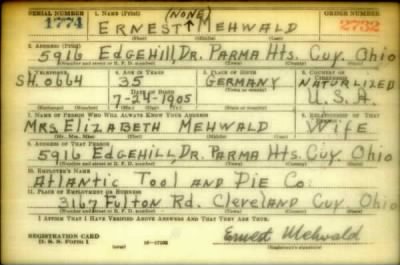 SERIAL NUMBER 1. NAME (Print) (NONE) ORDER NUMBER
1774 ERNEST ↑ MEHWALD 2732
(First) (Middle) (Last)
2. ADDRESS (Print)
5916 EDGEHILL, DR. PARMA HTS. CUY. OHIO
(Number and street or R. F. D. number) (Town) (County) (State)
3. TELEPHONE 4. AGE IN YEARS 5. PLACE OF BIRTH 6. COUNTRY OF CITIZENSHIP
SH. 0664 35 GERMANY NATURALIZED
DATE OF BIRTH (Town or county)
7-24-1905 U.S.A.
(Exchange) (Number) (Mo.) (Day) (Yr.) (State or country)
7. NAME OF PERSON WHO WILL ALWAYS KNOW YOUR ADDRESS 8. RELATIONSHIP OF THAT PERSON
MRS. ELIZABETH MEHWALD WIFE
(Mr., Mrs., Miss) (First) (Middle) (Last)
9. ADDRESS OF THAT PERSON
5916 EDGEHILL, DR. PARMA HTS. CUY. OHIO
(Number and street or R. F. D. number) (Town) (County) (State)
10. EMPLOYER'S NAME
ATLANTIC TOOL AND DIE CO.
11. PLACE OF EMPLOYMENT OR BUSINESS
3167 FULTON RD. CLEVELAND CUY. OHIO
(Number and street or R. F. D. number) (Town) (County) (State)
I AFFIRM THAT I HAVE VERIFIED ABOVE ANSWERS AND THAT THEY ARE TRUE.
REGISTRATION CARD Ernest Mehwald
D. S. S. FORM 1 (over) 16-17105 (Registrant's signature)